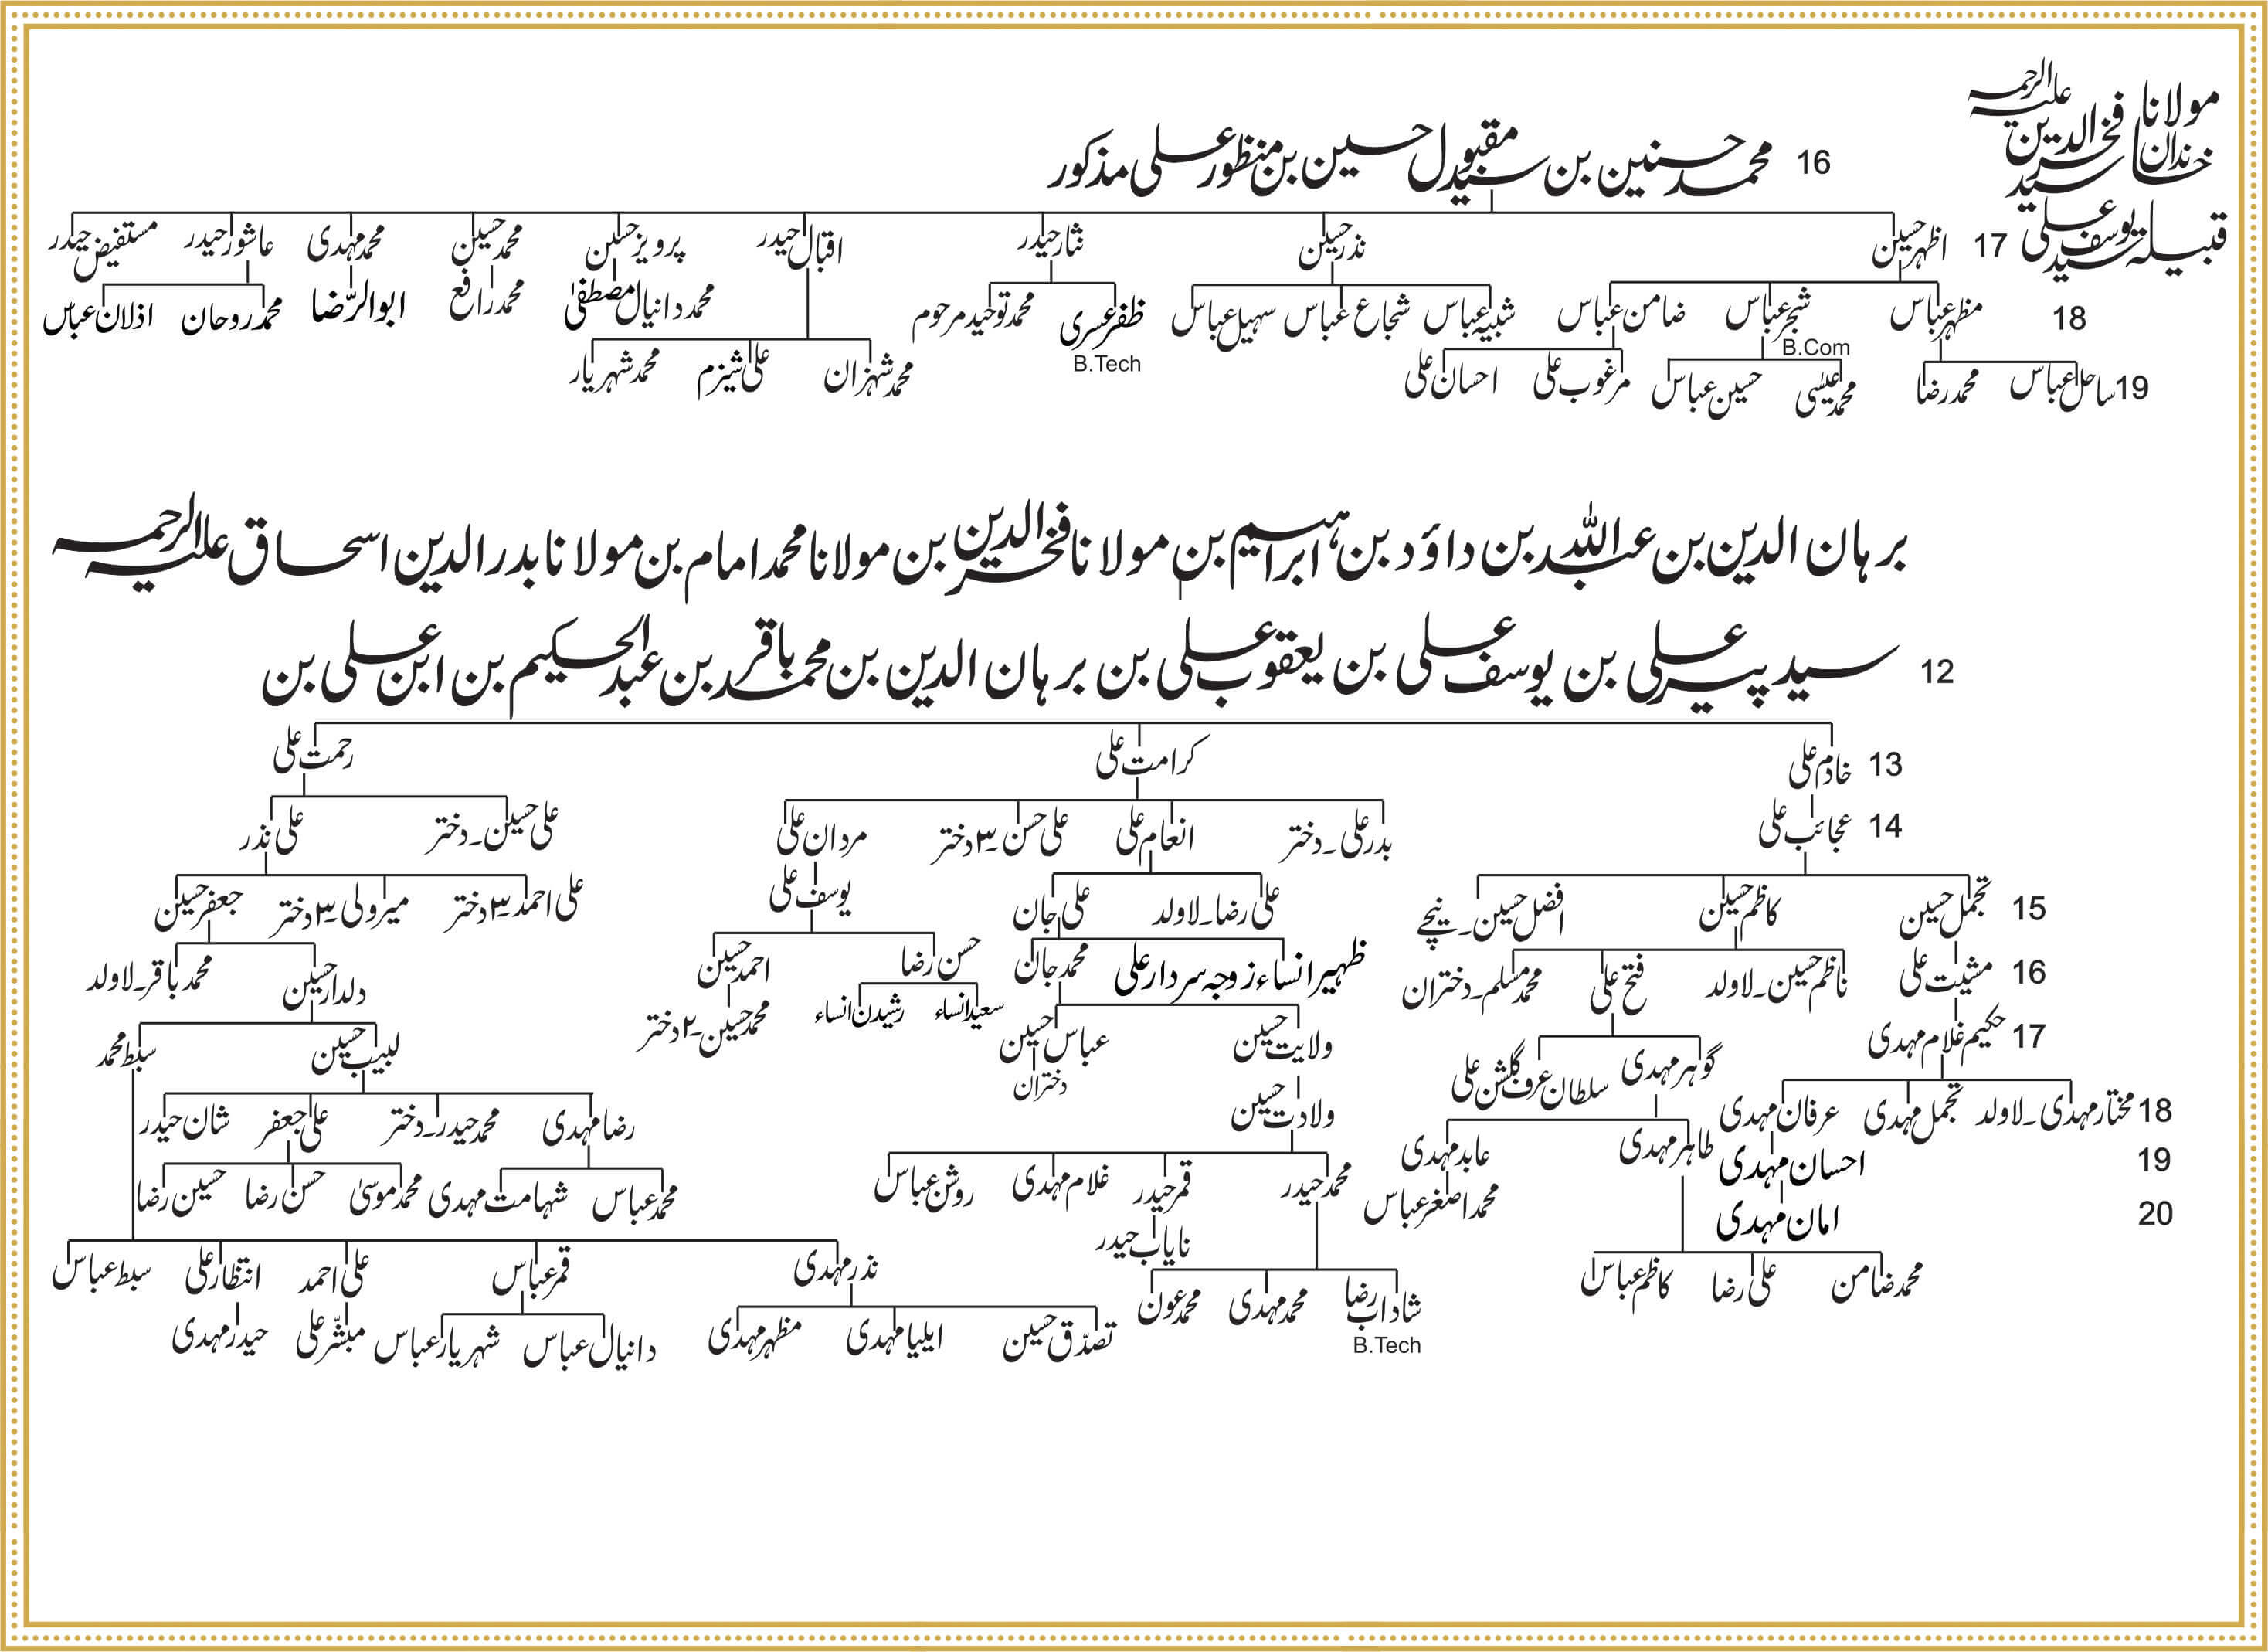 مولانا سید فخر الدین علیہ الرحمہ
خاندان
قبیلہ سید یوسف علی
16 محمد حسنین بن سید مقبول حسین بن منظور علی مذکور
17 اظہر حسین نذر حسین نثار حیدر اقبال حیدر پرویز حسن محمد حسین محمد مہدی عاشور حیدر مستفیض حیدر
18 مظہر عباس شجر عباس ضامن عباس شبیہ عباس شجاع عباس سہیل عباس ظفر عسری محمد توحید مرحوم محمد دانیال مصطفیٰ محمد رافع ابوالرّضا محمد روحان اذلان عبّاس
B.Com B.Tech
19 ساحل عباس محمد رضا محمد عیسٰی حسین عباس مرغوب علی احسان علی محمد شہزان علی شیزم محمد شہریار
برہان الدین بن عبد اللہ بن داؤد بن ابراہیم بن مولانا فخر الدین بن مولانا محمد امام بن مولانا بدر الدین اسحاق علیہ الرحمہ
12 سید پیر علی بن یوسف علی بن یعقوب علی بن برہان الدین بن محمد باقر بن عبد الحکیم بن ابن علی بن
13 خادم علی کرامت علی رحمت علی
14 عجائب علی بدر علی۔دختر انعام علی علی حسن ۳ دختر مردان علی علی حسین۔دختر علی نذر
15 تجمل حسین کاظم حسین افضل حسین۔نیچے علی رضا۔لاولد علی جان یوسف علی علی احمد ۳ دختر میر ولی ۳ دختر جعفر حسین
16 مشیت علی ناظم حسین۔لاولد فتح علی محمد مسلم۔دختران ظہیر انساء زوجہ سردار علی محمد جان حسن رضا احمد حسین دلدار حسین محمد باقر۔لاولد
17 حکیم غلام مہدی گوہر مہدی سلطان عرف گلشن علی ولایت حسین عباس حسین سعید انساء رشیدن انساء محمد حسین۔۲ دختر لبیب حسین سبط محمد
دختران
18 مختار مہدی۔لاولد تجمل مہدی عرفان مہدی طاہر مہدی عابد مہدی ولادت حسین رضا مہدی محمد حیدر۔دختر علی جعفر شان حیدر
19 احسان مہدی محمد اصغر عباس محمد حیدر قمر حیدر غلام مہدی روشن عباس محمد عباس شہامت مہدی محمد موسیٰ حسن رضا حسین رضا
20 امان مہدی نایاب حیدر
محمد ضامن علی رضا کاظم عباس شاداب رضا محمد مہدی محمد عون نذر مہدی قمر عباس علی احمد انتظار علی سبط عباس
B.Tech
تصدّق حسین ایلیا مہدی مظہر مہدی دانیال عباس شہریار عباس مبشّر علی حیدر مہدی